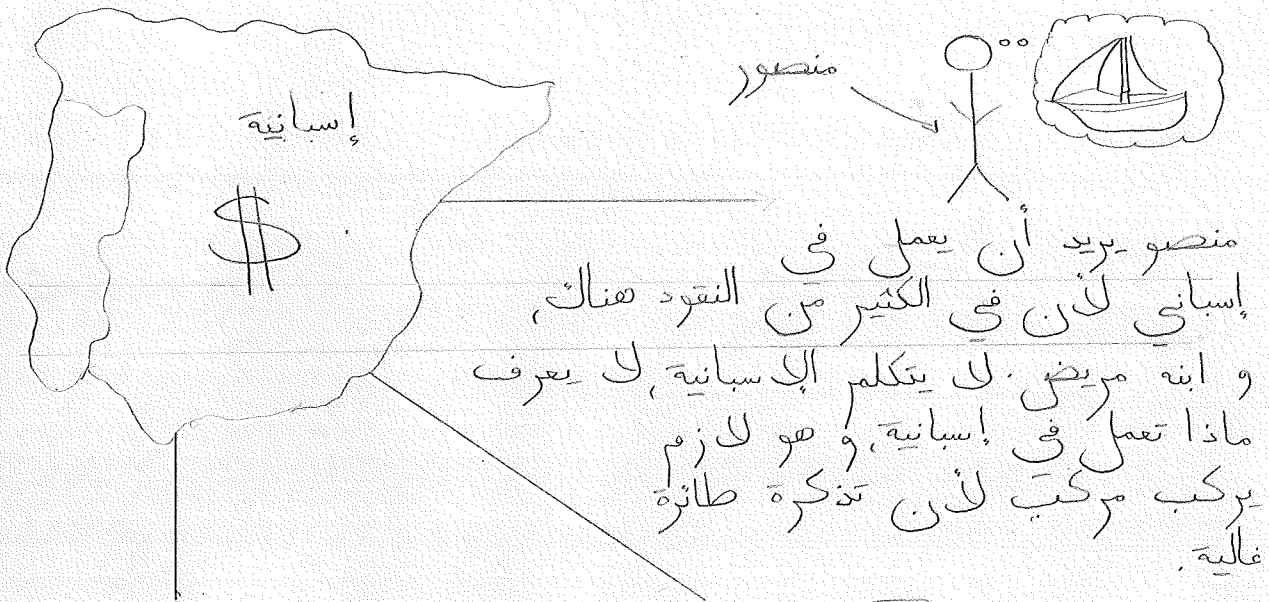 إسبانية
$
منصور
منصو يريد أن يعمل في
إسباني لأن في الكثير من النقود هناك,
و ابنه مريض. لا يتكلم الإسبانية, لا يعرف
ماذا تعمل في إسبانية, و هو لازم
يركب مركب لأن تذكرة طائرة
غالية.